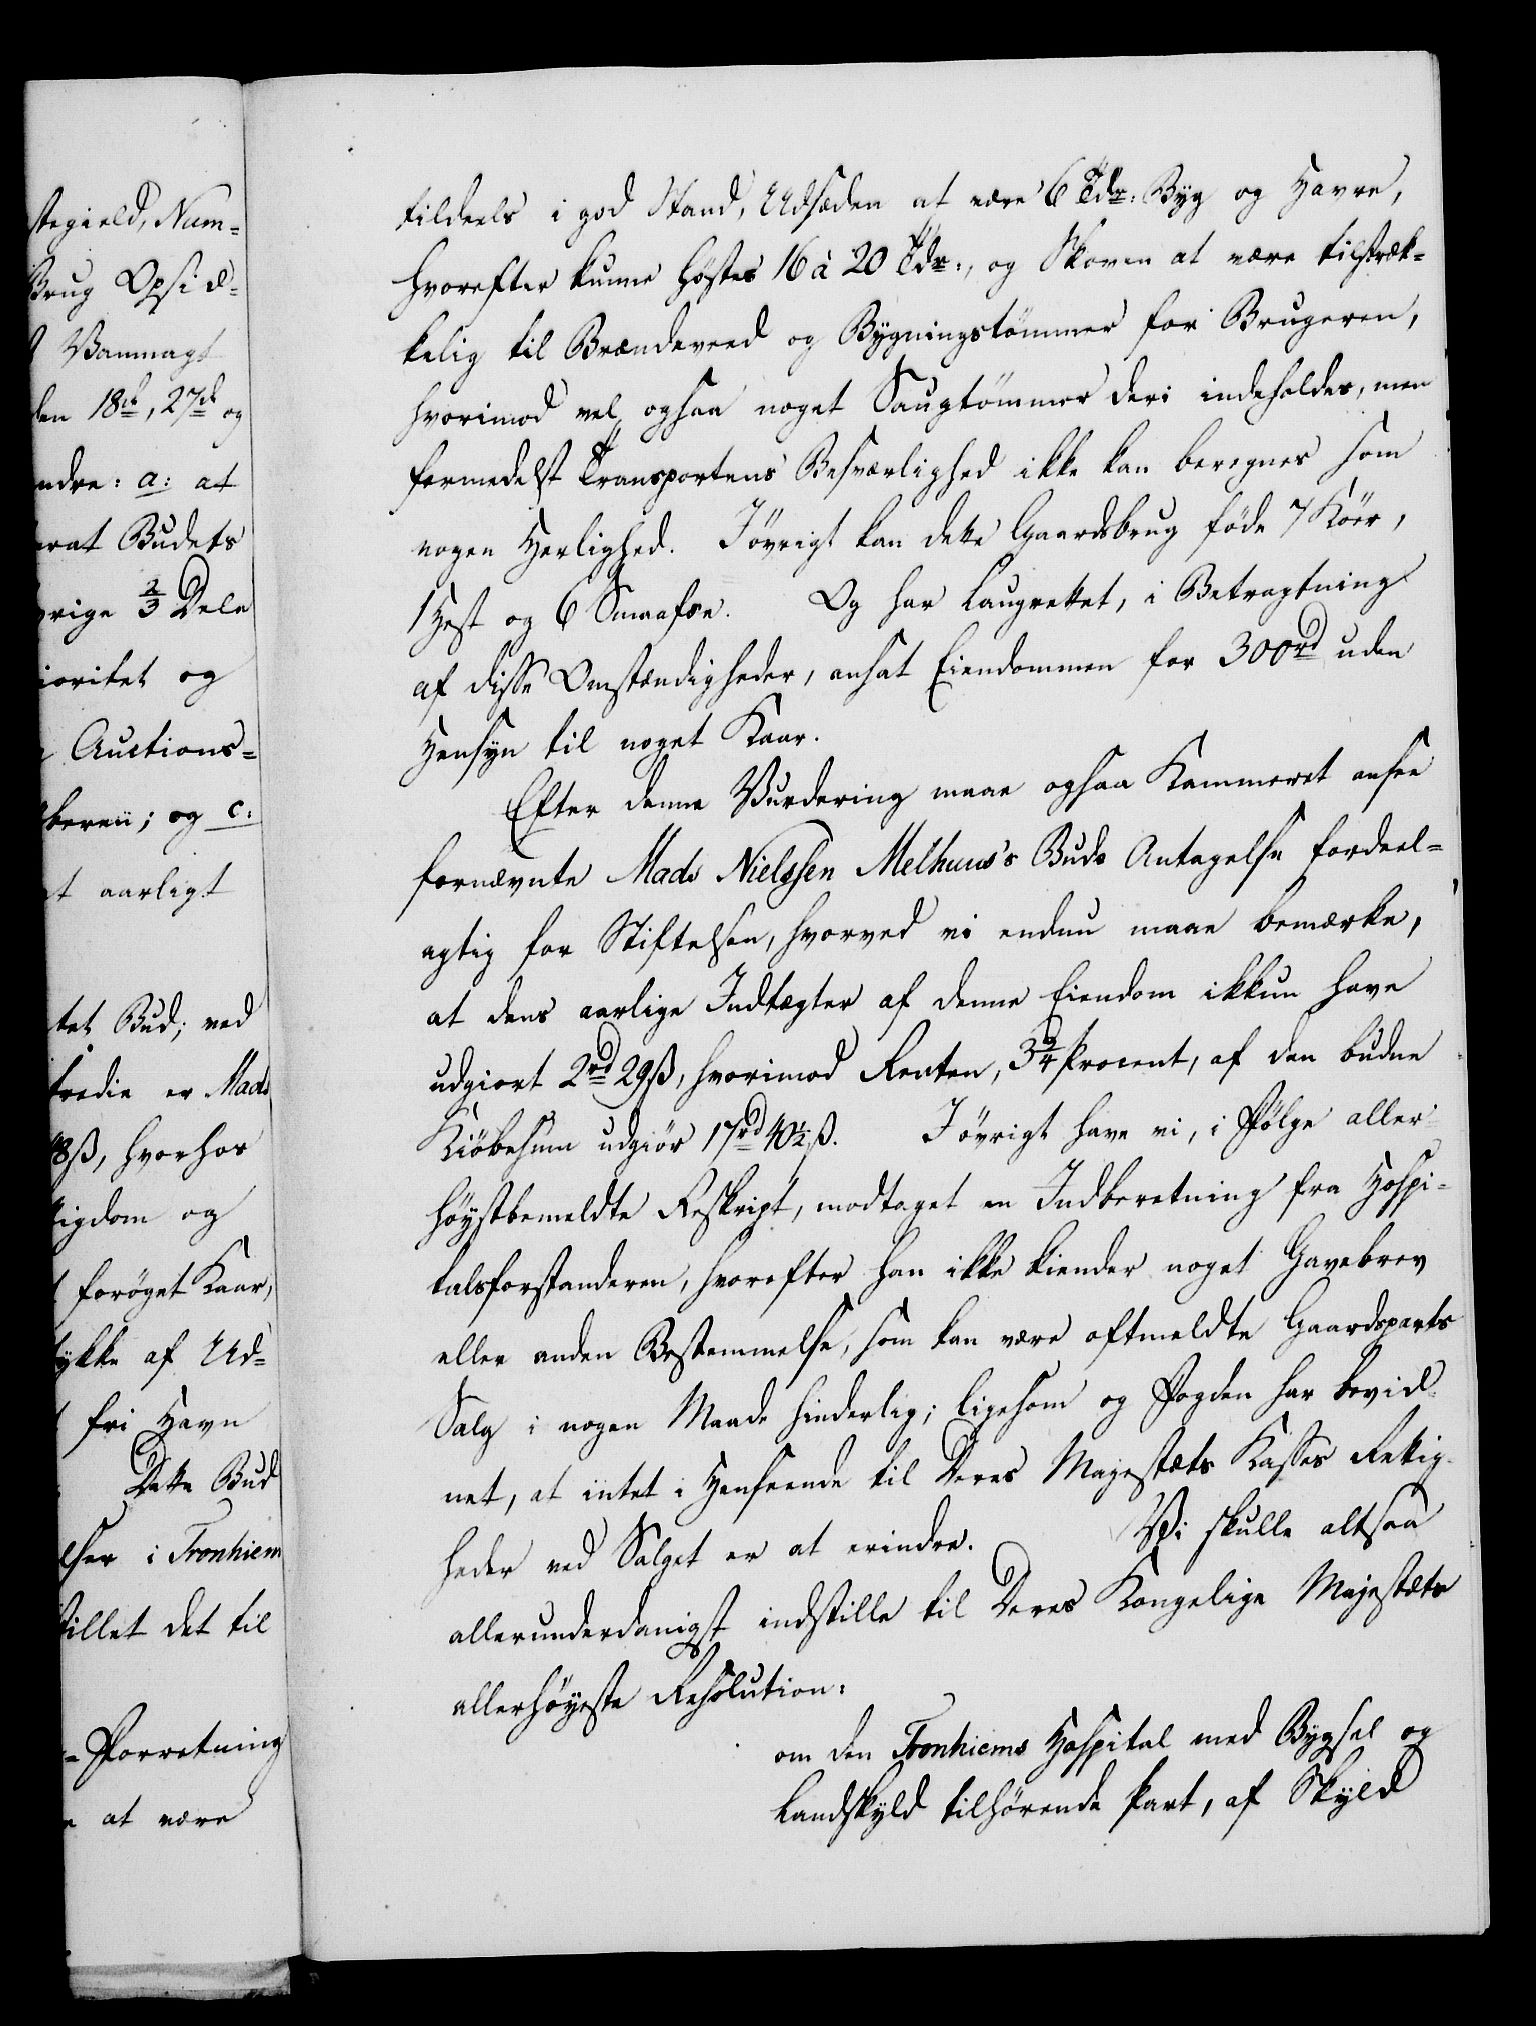 stegield, Nam=
Brug Opsid=
Vanmagt
den 18de, 27de og
ndre: a: at
erat Budets
vrige 2/3 Dele
ioritet og
Auctions=
beren; og c:
et aarligt
tet Bud; ved
tredie er Mads
8ß, hvorhos
tigdom og
forøget Kaar,
ykke af Ud=
fri Havn
Dette Bud
lser i Tronhiem
tillet det til
=Forretning
at være
tildeels i god Stand, Udsæden at være 6 Tdr: Byg og Havre,
hvorefter kunne høstes 16 à 20 Tdr:, og Skoven at være tilstræk=
kelig til Brændeveed og Bygningstömmer for Brugeren,
hvorimod vel ogsaa noget Saugtömmer deri indeholdes, men
formedelst Transportens Besværlighed ikke kan beregnes som
nogen Herlighed. Iøvrigt kan dette Gaardsbrug föde 7 Köer,
1 Hest og 6 Smaafæ. Og har Laugrettet, i Betragtning
af disse Omstændigheder, ansat Eiendommen for 300rd uden
Hensyn til noget Kaar.
Efter denne Vurdering maae ogsaa Kammeret ansee
fornævnte Mads Nielssen Melhuus's Buds Antagelse fordeel=
agtig for Stiftelsen, hvorved vi endnu maae bemærke,
at dens aarlige Indtægter af denne Eiendom ikkun have
udgiort 2rd 29ß, hvorimod Renten, 3 3/4 Procent, af den budne
Kiöbesum udgiör 17rd 40 1/2 ß. Iövrigt have vi, i Fölge aller=
höystbemeldte Reskript, modtaget en Indberetning fra Hospi=
talsforstanderen, hvorefter han ikke kiender noget Gavebrev
eller anden Bestemmelse, som kan være oftmeldte Gaardsparts
Salg i nogen Maade hinderlig; ligesom og Fogden har bevid=
net, at intet i Henseende til Deres Majestæts Kasses Rettig=
heder ved Salget er at erindre. Vi skulle altsaa
allerunderdanigst indstille til Deres Kongelige Majestæts
allerhöyeste Resolution:
om den Tronhiems Hospital med Bygsel og
Landskyld tilhörende Part, af Skyld